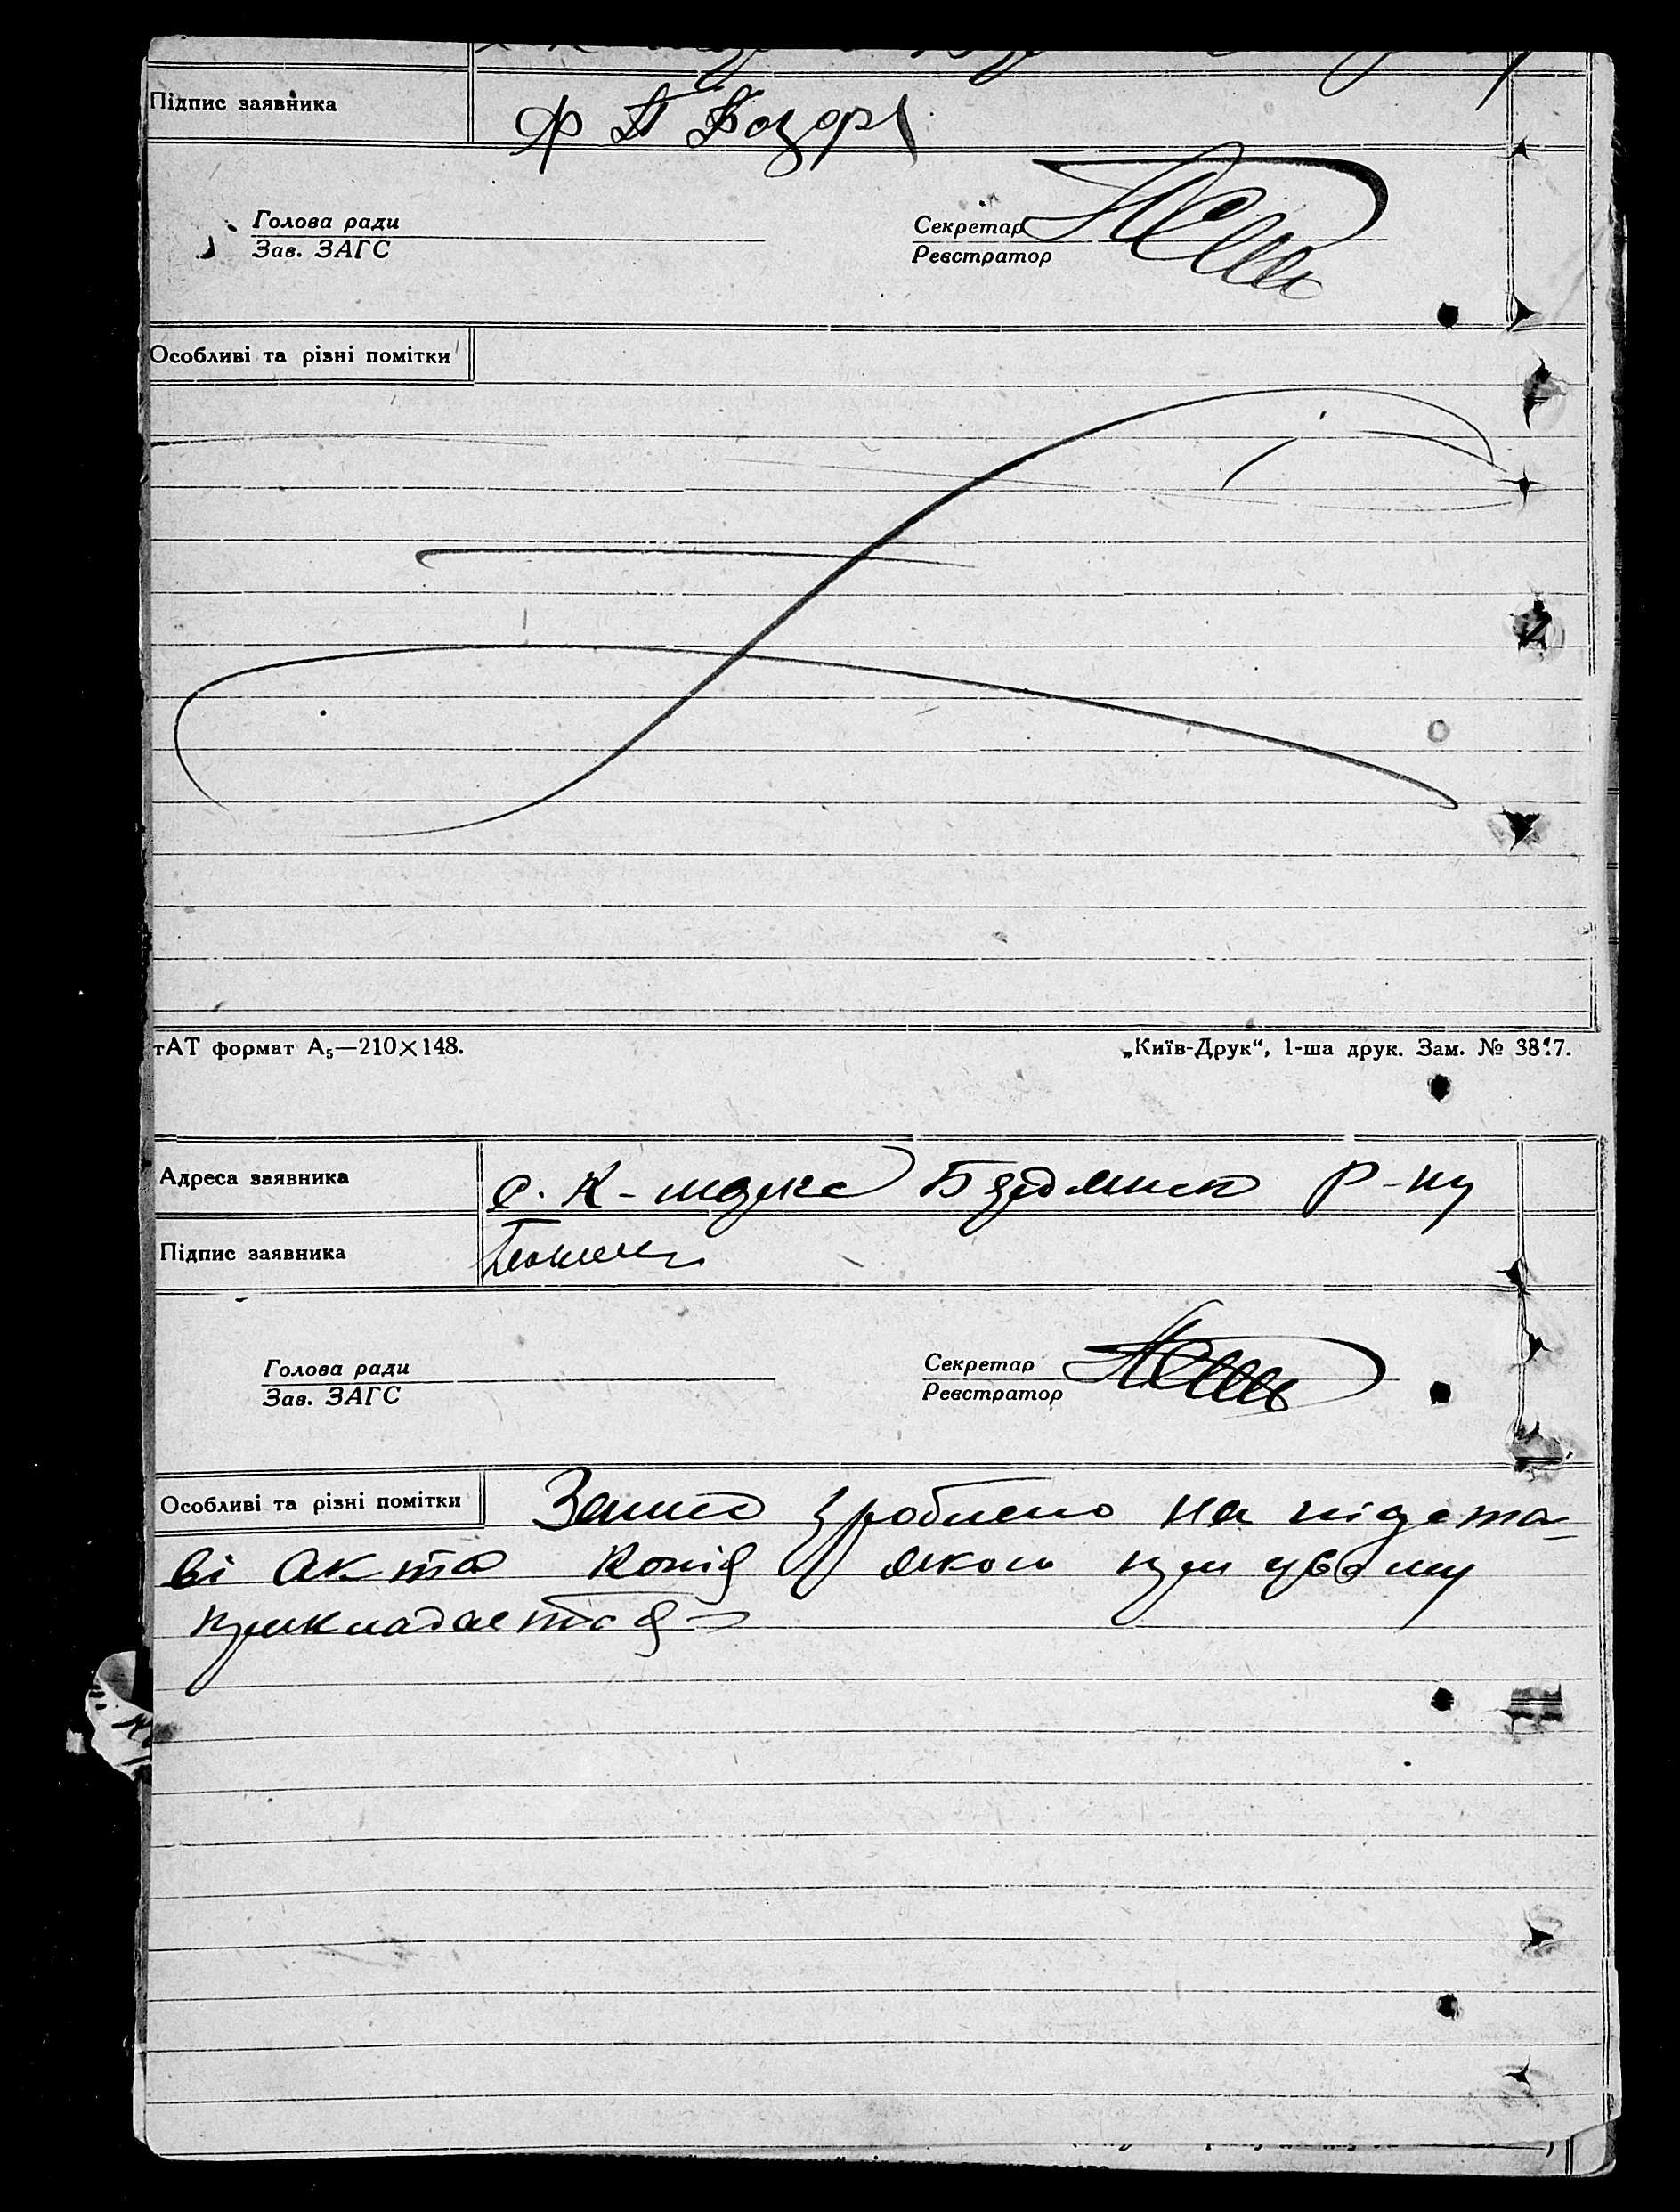 Підпис заявника
Голова ради
Зав. ЗАГС
Секретар
Реєстратор
Особливі та різні помітки
тАТ формат А₅—210×148.
„Київ-Друк“, 1-ша друк. Зам. №
Адреса заявника с. К- Р-ну
Підпис заявника
Голова ради
Зав. ЗАГС
Секретар
Реєстратор
Особливі та різні помітки Запис зроблено на підста-
ві акта копія якого при цьому
прикладається